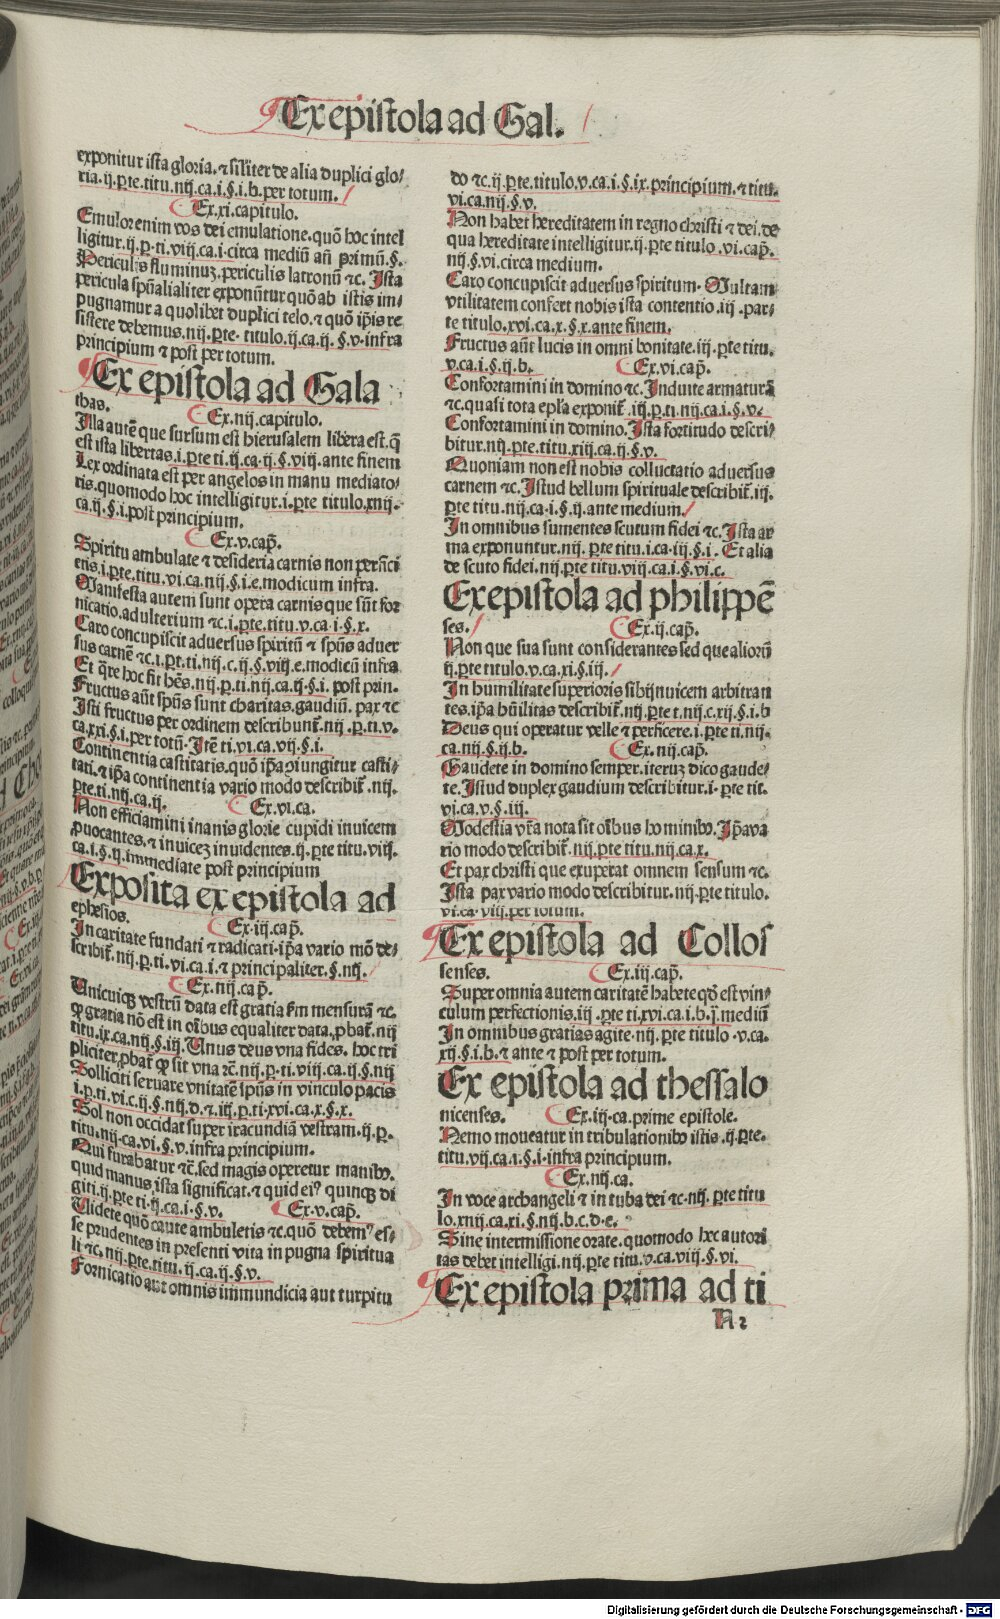 Ex epistola ad Gal.
exponitur ista gloria. ⁊ siĺiter de alia duplici glo⸗
ria. ij. ꝑte. titu. iiij. ca. i. §. i. b. per totum.
Ex. xi. capitulo.
Emulor enim vos dei emulatione. quō hoc intel
ligitur. ij. p. ti. viij. ca. i. circa mediū añ primū. §.
Periculis fluminuȝ. periculis latronū ⁊c. Ista
pericula spūalialiter exponūtur quō ab istis im⸗
pugnamur a quolibet duplici telo. ⁊ quō ip̄is re
sistere debemus. iiij. ꝑte. titulo. ij. ca. ij. §. v. infra
principium ⁊ post per totum.
Ex epistola ad Gala
thas.
Ex. iiij. capitulo.
Illa autē que sursum est hierusalem libera est. q̄
est ista libertas. i. ꝑte ti. ij. ca. ij. §. viij. ante finem
Lex ordinata est per angelos in manu mediato⸗
ris. quomodo hoc intelligitur. i. ꝑte titulo. xiiij.
ca. ij. §. i. post principium.
Ex. v. cap̄.
Spiritu ambulate ⁊ desideria carnis non perfici
etis. i. ꝑte. titu. vi. ca. iiij. §. i. e. modicum infra.
Manifesta autem sunt opera carnis que sūt for
nicatio. adulterium ⁊c. i. ꝑte. titu. v. ca. i. §. x.
Caro concupiscit adversus spiritū ⁊ sp̄us adver
sus carnē ⁊c. i. pt. ti. iiij. c. ij. §. viij. e. modicū infra
Et q̄re hoc sit hēs. iiij. p. ti. iiij. ca. ij. §. i. post prin.
Fructus aūt sp̄us sunt charitas. gaudiū. pax ⁊c
Isti fructus per ordinem describunt̄. iiij. p. ti. v.
ca. xxi. §. i. per totū. Itē ti. vi. ca. vij. §. i.
Continentia castitatis. quō ip̄a ɔiungitur casti⸗
tati. ⁊ ip̄a continentia vario modo describit̄. iiij.
ꝑte. ti. iiij. ca. ij.
Ex. vi. ca.
Non efficiamini inanis glorie cupidi invicem
ꝓvocantes. ⁊ inviceȝ invidentes. ij. ꝑte titu. viij.
ca. i. §. ij. immediate post principium
Exposita ex epistola ad
ephesios.
Ex. iij. cap̄.
In caritate fundati ⁊ radicati. ip̄a vario mō de⸗
scribit̄. iiij. p. ti. vi. ca. i. ⁊ principaliter. §. iiij.
Ex. iiij. cap̄.
Unicuiqȝ vestrū data est gratia ẜm mensurā ⁊c.
ꝙ gratia nō est in oībus equaliter data. ꝓbat̄. iiij
titu. ix. ca. iiij. §. iij. Unus deus vna fides. hoc tri
pliciter ꝓbat̄ ꝙ sit vna ⁊c̄. iiij. p. ti. viij. ca. ij. §. iiij
Solliciti servare vnitatē sp̄us in vinculo pacis
i. p. ti. vi. c. ij. §. iiij. d. ⁊ iij. p. ti. xvi. ca. x. §. x.
Sol non occidat super iracundiā vestram. ij. p.
titu. iiij. ca. vi. §. v. infra principium.
Qui furabatur ⁊c̄. sed magis operetur manibꝰ.
quid manus ista significat. ⁊ quid eiꝰ quinqȝ di
giti. ij. ꝑte ti. ij. ca. i. §. v.
Ex. v. cap̄.
Videte quō caute ambuletis ⁊c. quō debemꝰ es⸗
se prudentes in presenti vita in pugna spiritua
li ⁊c. iiij. ꝑte. titu. ij. ca. ij. §. v.
Fornicatio aut omnis immundicia aut turpitu
do ⁊c. ij. ꝑte. titulo. v. ca. i. §. ix. principium. ⁊ titu.
vi. ca. iiij. §. v.
Non habet hereditatem in regno christi ⁊ dei. de
qua hereditate intelligitur. ij. ꝑte titulo. vi. cap̄.
iiij. §. vi. circa medium.
Caro concupiscit adversus spiritum. Multam
vtilitatem confert nobis ista contentio. iij. par⸗
te titulo. xvi. ca. x. §. x. ante finem.
Fructus aūt lucis in omni bonitate. iij. ꝑte titu.
v. ca. i. §. ij. b.
Ex. vi. cap̄.
Confortamini in domino ⁊c. Induite armaturā
⁊c. quasi tota epl̄a exponit̄. iij. p. ti. iiij. ca. i. §. v.
Confortamini in domino. Ista fortitudo descri⸗
bitur. iiij. ꝑte. titu. xiij. ca. ij. §. v.
Quoniam non est nobis colluctatio adversus
carnem ⁊c. Istud bellum spirituale describit̄. iij.
ꝑte titu. iiij. ca. i. §. ij. ante medium.
In omnibus sumentes scutum fidei ⁊c. Ista ar
ma exponuntur. iiij. ꝑte titu. i. ca. iij. §. i. Et alia
de scuto fidei. iiij. ꝑte titu. viij. ca. i. §. vi. c.
Ex epistola ad philippē
ses.
Ex. ij. cap̄.
Non que sua sunt considerantes sed que aliorū
ij. ꝑte titulo. v. ca. xi. §. iij.
In humilitate superioris sibijnvicem arbitran
tes. ip̄a hūilitas describit̄. iiij. ꝑte t. iiij. c. xij. §. i. b
Deus qui operatur velle ⁊ perficere. i. ꝑte ti. iiij.
ca. iiij. §. ij. b.
Ex. iiij. cap̄.
Gaudete in domino semper. iteruȝ dico gaude⸗
te. Istud duplex gaudium describitur. i. ꝑte tit.
vi. ca. v. §. iij.
Modestia vr̄a nota sit oībus hominibꝰ. Ip̄a va
rio modo describit̄. iiij. ꝑte titu. iiij. ca. x.
Et pax christi que exuperat omnem sensum ⁊c.
Ista pax vario modo describitur. iiij. ꝑte titulo.
vi. ca. viij. per totum.
Ex epistola ad Collos
senses.
Ex. iij. cap̄.
Super omnia autem caritatē habete qd̄ est vin⸗
culum perfectionis. iij. ꝑte ti. xvi. ca. i. b. ij. mediū
In omnibus gratias agite. iiij. ꝑte titulo. v. ca.
xij. §. i. b. ⁊ ante ⁊ post per totum.
Ex epistola ad thessalo
nicenses.
Ex. iij. ca. prime epistole.
Nemo moveatur in tribulationibꝰ istis. ij. ꝑte.
titu. vij. ca. i. §. i. infra principium.
Ex. iiij. ca.
In voce archangeli ⁊ in tuba dei ⁊c. iiij. ꝑte titu
lo. xiiij. ca. xi. §. iiij. b. c. d. e.
Sine intermissione orate. quomodo hec autori
tas debet intelligi. iiij. ꝑte titu. v. ca. viij. §. vi.
Ex epistola prima ad ti
N 2
Digitalisierung gefördert durch die Deutsche Forschungsgemeinschaft - DFG